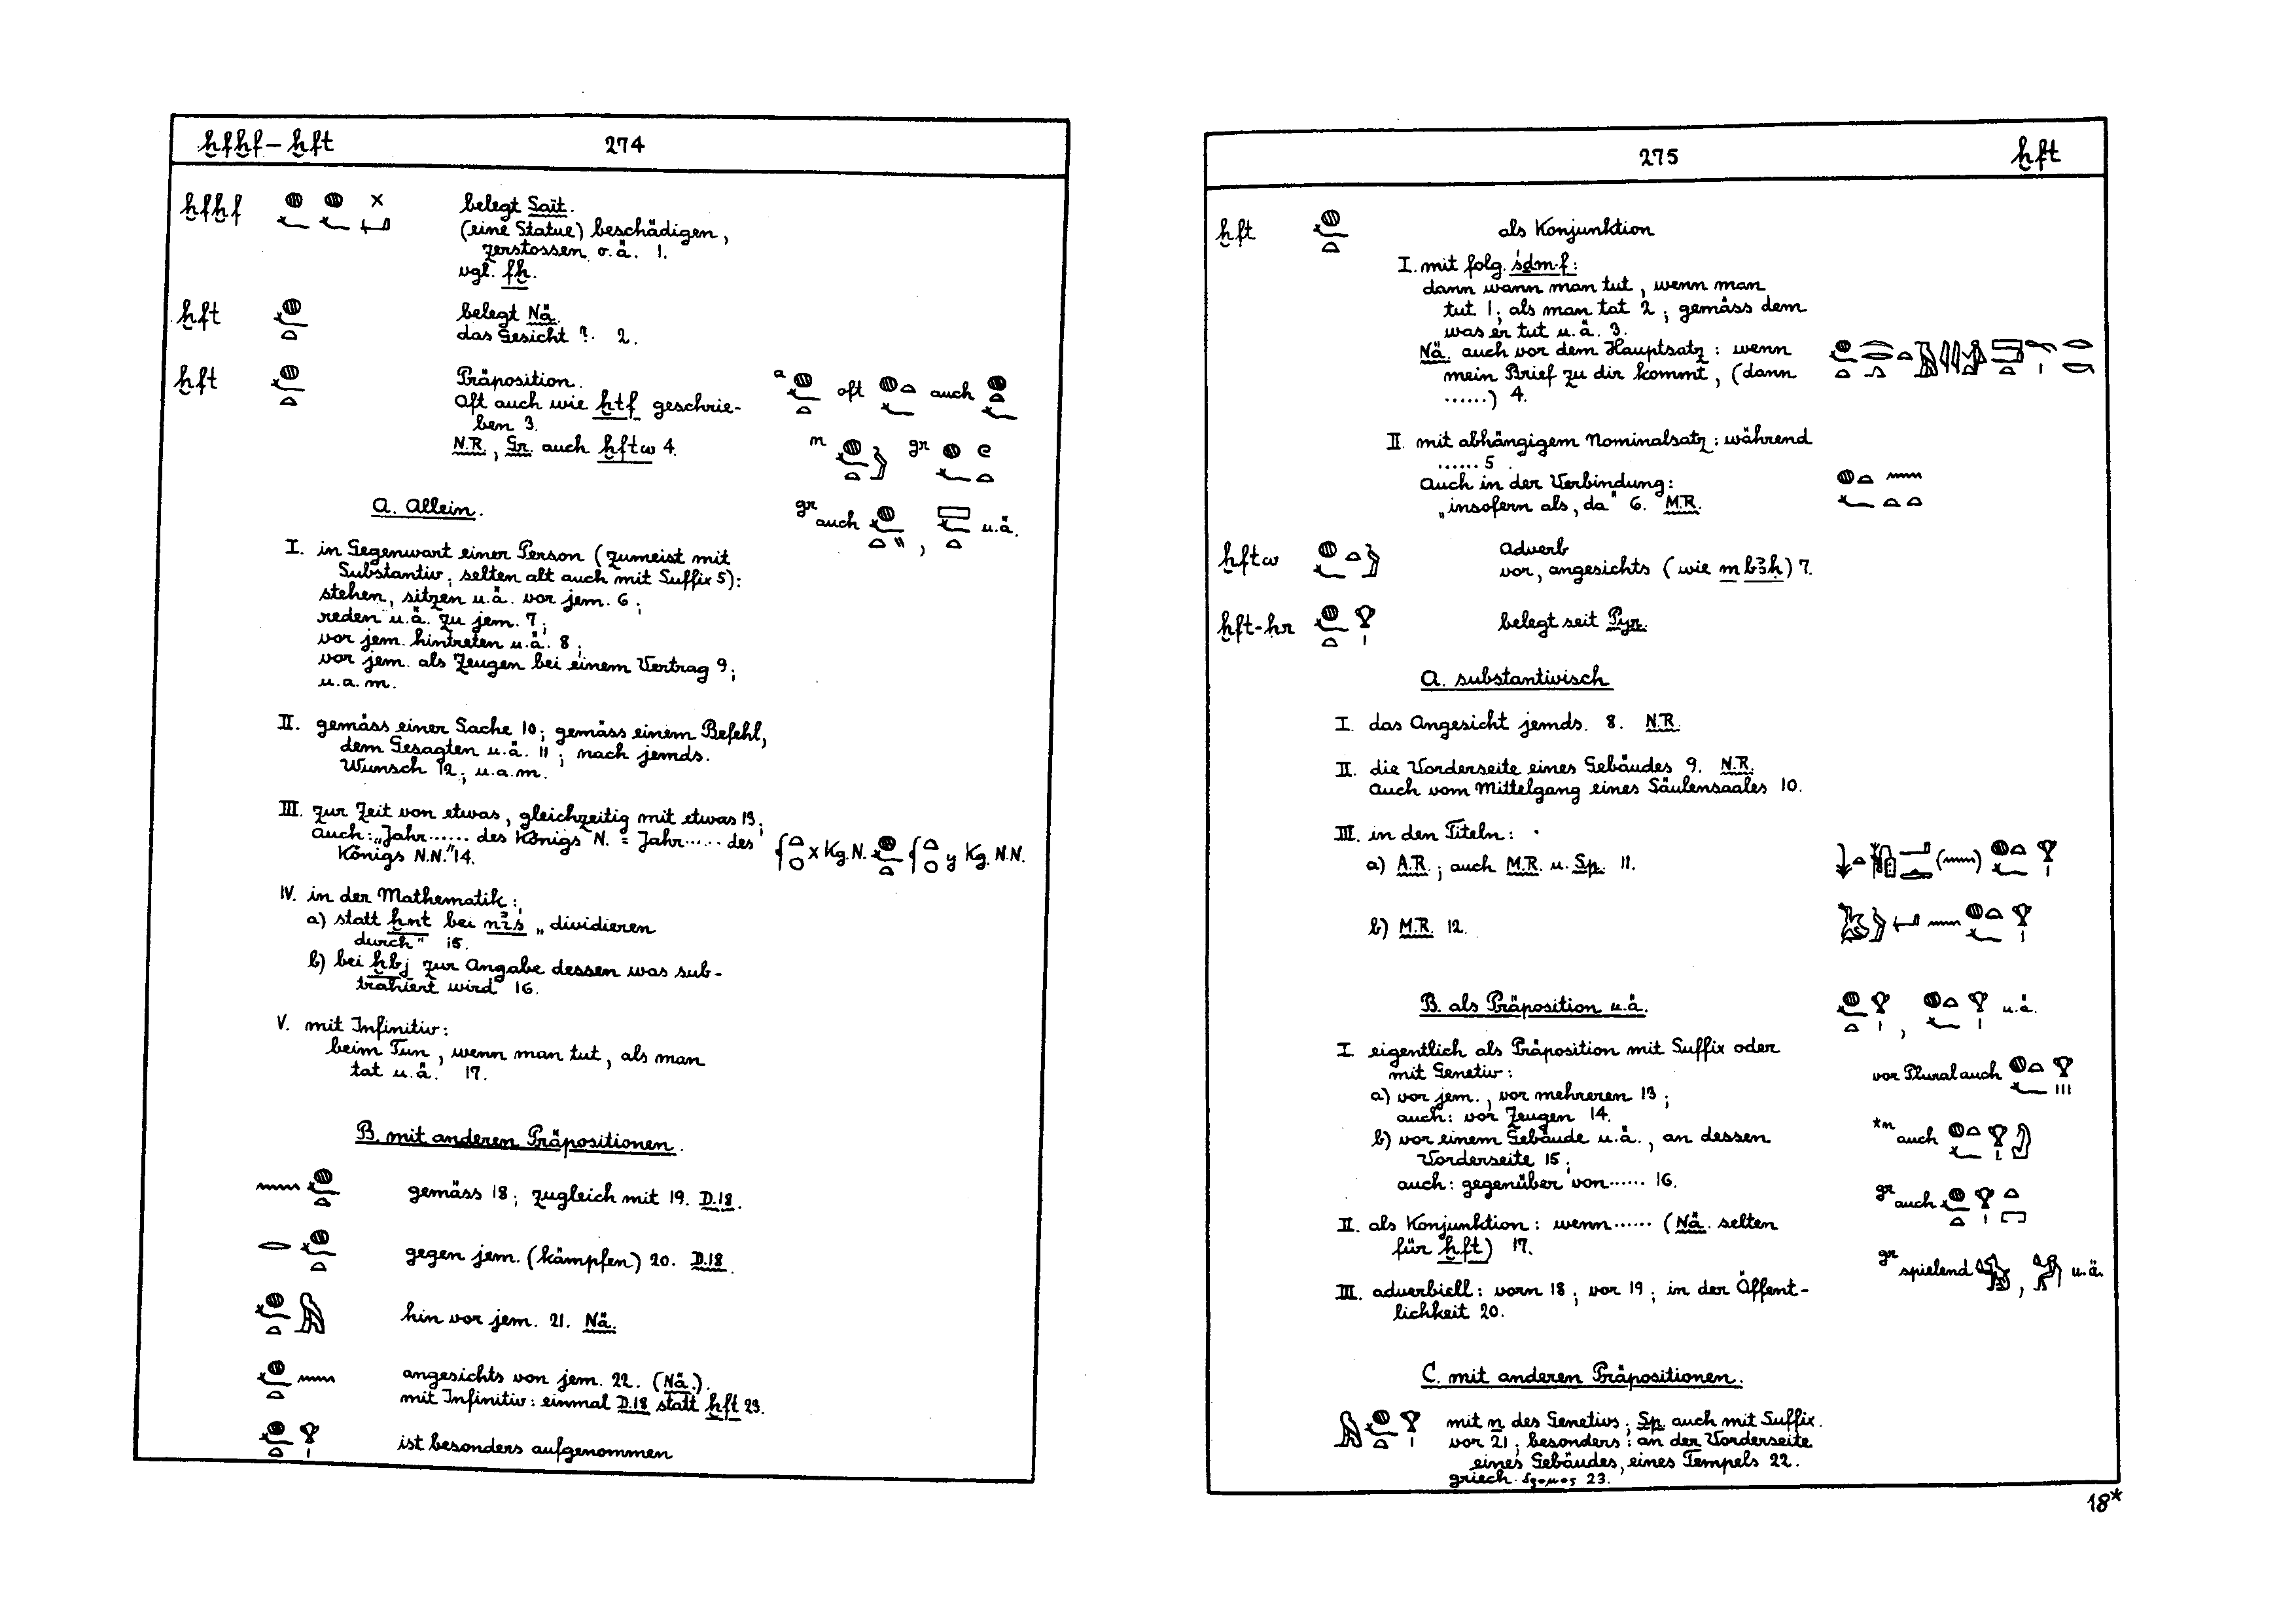 ḫfḫf – ḫft 274
ḫfḫf belegt Sait.
(eine Statue) beschädigen,
zerstossen o.ä. 1.
vgl. fḫ.
ḫft belegt Nä.
das Gesicht ?. 2.
ḫft Präposition.
Oft auch wie ḫtf geschrie-
ben 3.
N.R., Gr. auch ḫftw 4.
a oft auch
n gr
gr auch , u.ä.
A. Allein.
I. in Gegenwart einer Person (zumeist mit
Substantiv; selten alt auch mit Suffix 5):
stehen, sitzen u.ä. vor jem. 6;
reden u.ä. zu jem. 7;
vor jem. hintreten u.ä. 8;
vor jem. als Zeugen bei einem Vertrag 9;
u.a.m.
II. gemäss einer Sache 10; gemäss einem Befehl,
dem Gesagten u.ä. 11; nach jemds.
Wunsch 12; u.a.m.
III. zur Zeit von etwas, gleichzeitig mit etwas 13;
auch: „Jahr...... des Königs N. = Jahr..... des
Königs N.N." 14.
x Kg. N. y Kg. N.N.
IV. in der Mathematik:
a) statt ḫnt bei nꞽś „dividieren
durch" 15.
b) bei ḫbj zur Angabe dessen was sub-
trahiert wird 16.
V. mit Infinitiv:
beim Tun, wenn man tut, als man
tat u.ä. 17.
B. mit anderen Präpositionen.
gemäss 18; zugleich mit 19. D.18.
gegen jem. (kämpfen) 20. D.18.
hin vor jem. 21. Nä.
angesichts von jem. 22. (Nä.).
mit Infinitiv: einmal D.18 statt ḫft 23.
ist besonders aufgenommen
275 ḫft
ḫft als Konjunktion
I. mit folg. śḏm.f:
dann wann man tut, wenn man
tut 1; als man tat 2; gemäss dem
was er tut u.ä. 3.
Nä. auch vor dem Hauptsatz: wenn
mein Brief zu dir kommt, (dann
......) 4.
II. mit abhängigem Nominalsatz: während
...... 5.
Auch in der Verbindung:
„insofern als, da" 6. M.R.
ḫftw Adverb
vor, angesichts (wie m bꜣḥ) 7.
ḫft-ḥr belegt seit Pyr.
A. substantivisch
I. das Angesicht jemds. 8. N.R.
II. die Vorderseite eines Gebäudes 9. N.R.
Auch vom Mittelgang eines Säulensaales 10.
III. in den Titeln:
a) A.R.; auch M.R. u. Sp. 11.
b) M.R. 12.
B. als Präposition u.ä.
, u.ä.
I. eigentlich als Präposition mit Suffix oder
mit Genetiv:
a) vor jem., vor mehreren 13;
auch: vor Zeugen 14.
b) vor einem Gebäude u.ä., an dessen
Vorderseite 15;
auch: gegenüber von...... 16.
vor Plural auch
*n auch
gr auch
gr spielend , u.ä.
II. als Konjunktion: wenn...... (Nä. selten
für ḫft) 17.
III. adverbiell: vorn 18; vor 19; in der Öffent-
lichkeit 20.
C. mit anderen Präpositionen.
mit n des Genetivs; Sp. auch mit Suffix.
vor 21; besonders: an der Vorderseite
eines Gebäudes, eines Tempels 22.
griech. δρομος 23.
18*